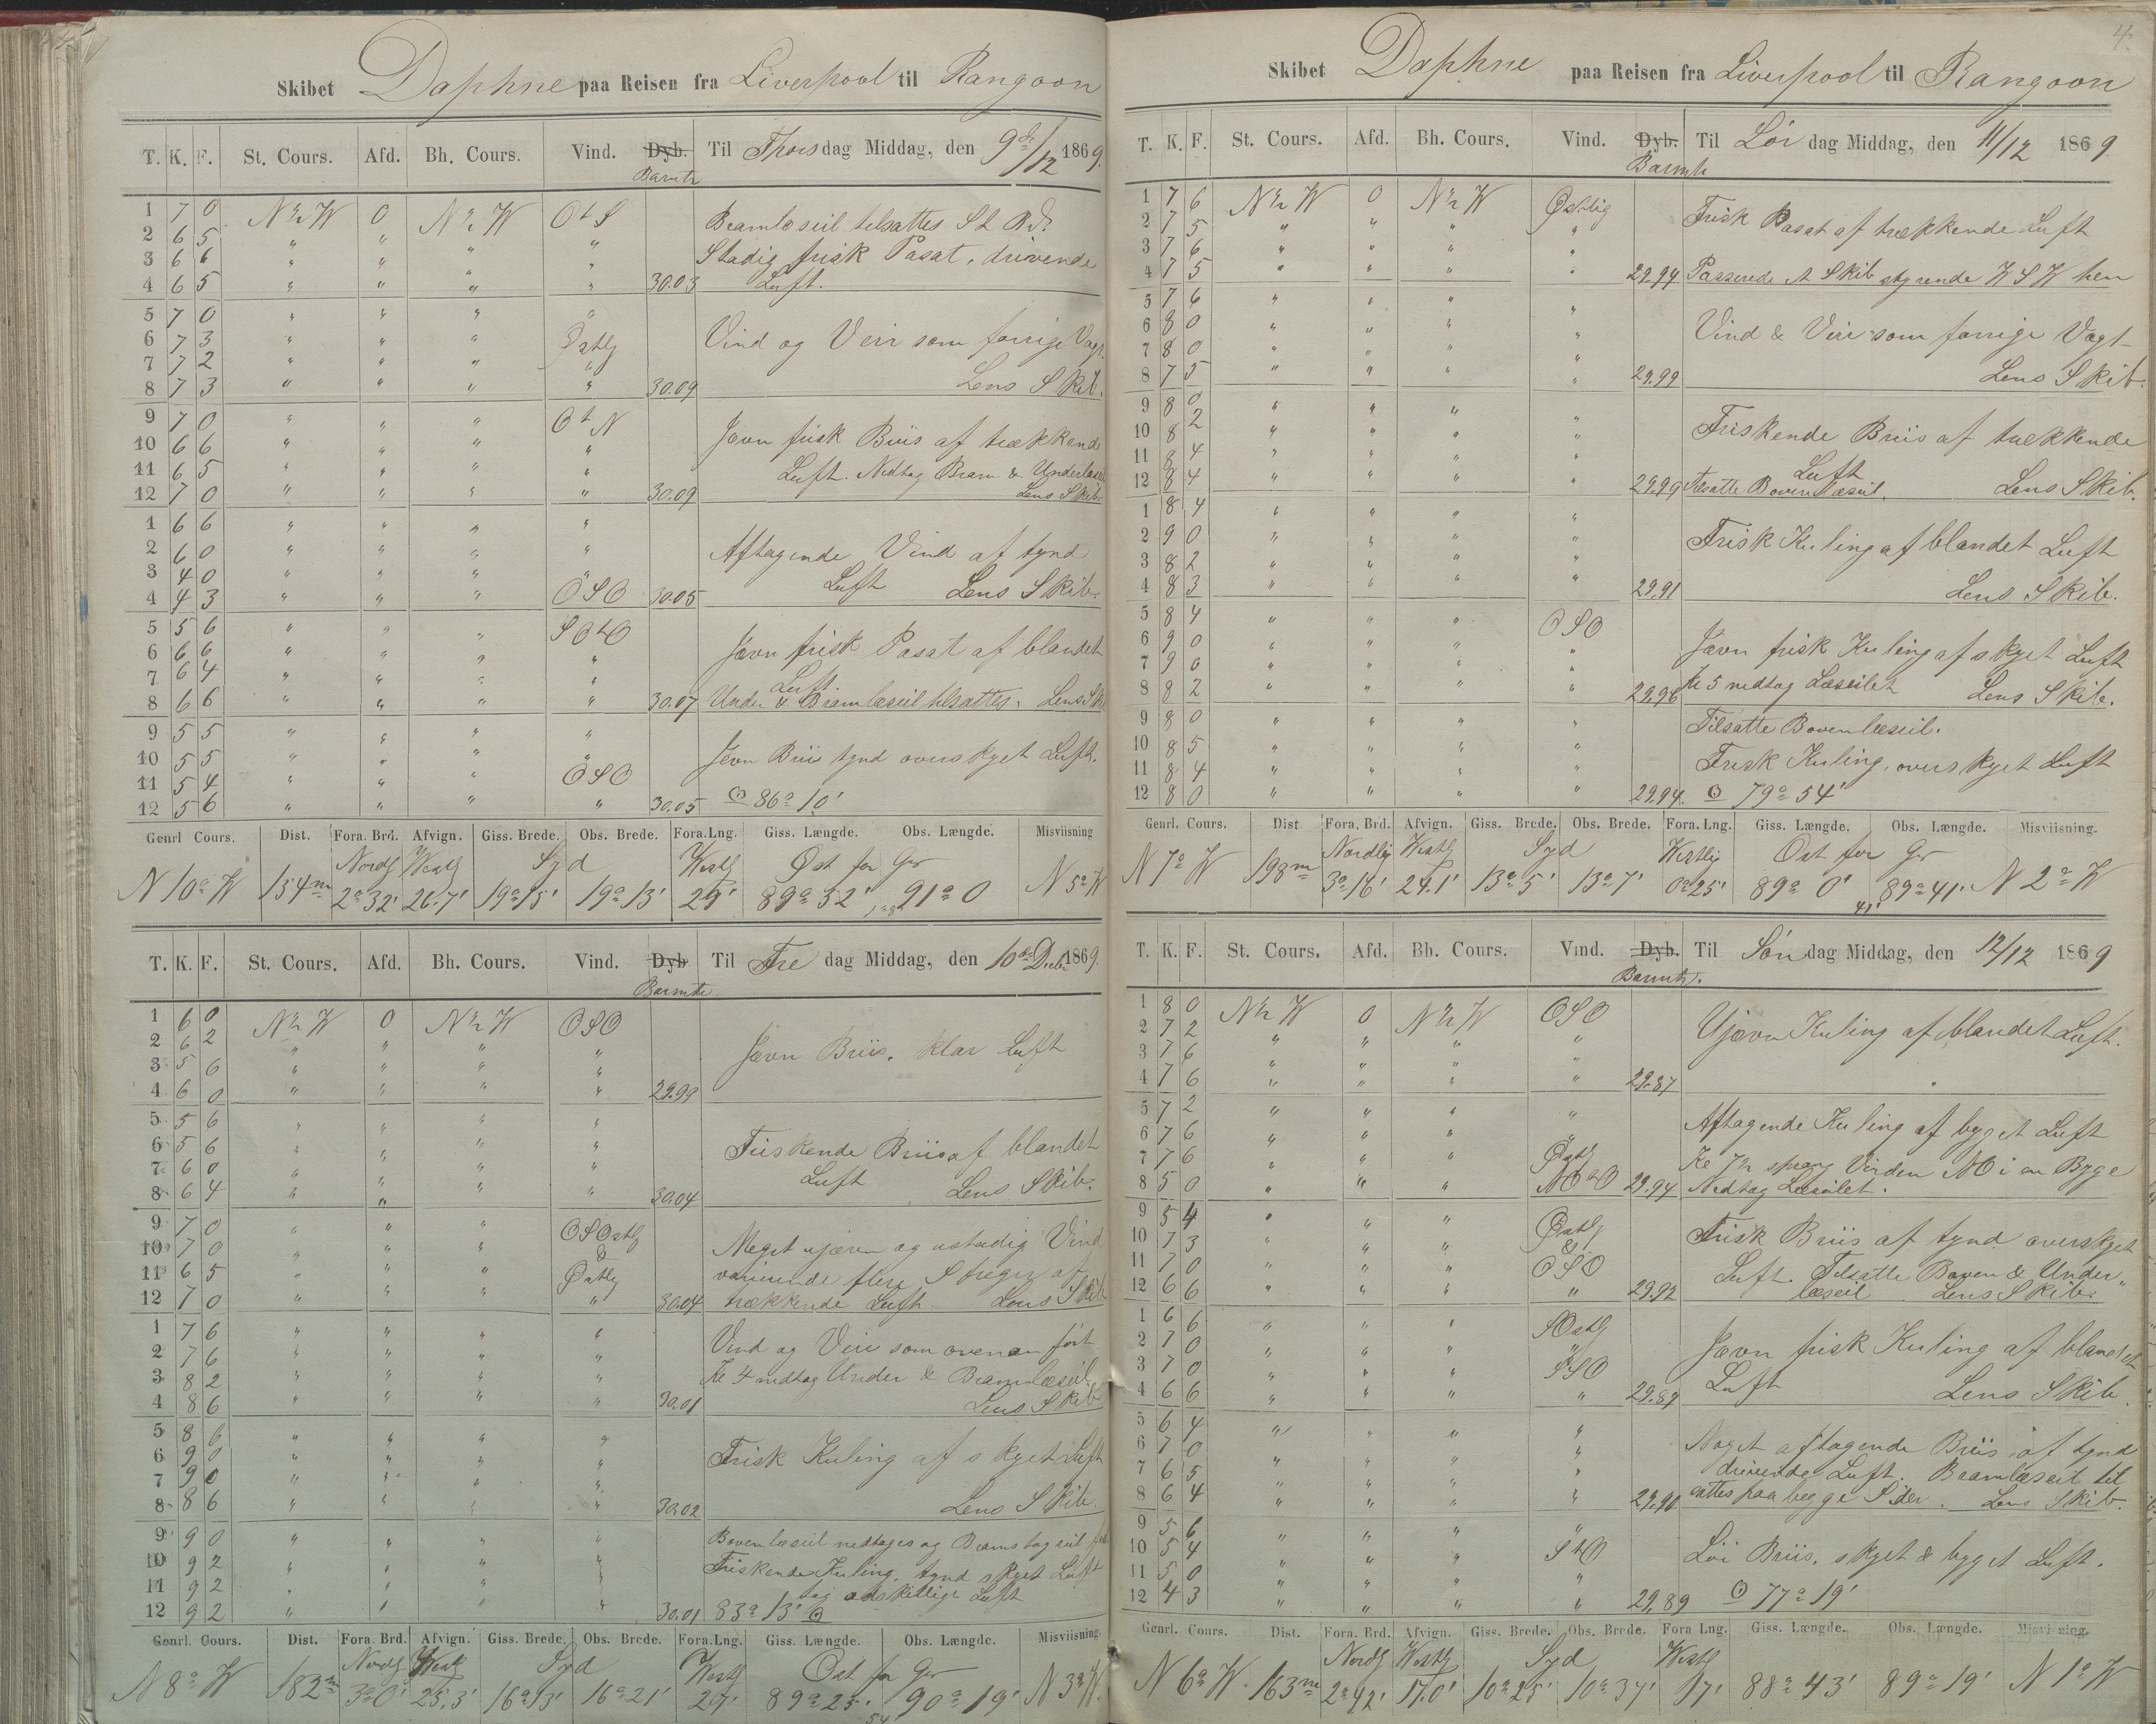 Skibet Daphne paa Reisen fra Liverpool til Rangoon
T. K. F. St. Cours. Afd. Bh. Cours. Vind. Dyb. Til Thors dag Middag, den 9de/12 1869.
Barmtr
1 7 0 N½W 0 N½W OtS Bramlæseil tilsattes St Bd
2 6 5 " " " " Stadig frisk Pasat, drivende
3 6 6 " " " "
4 6 5 " " " " 30.03 Luft.
5 7 0 " " " "
6 7 3 " " " Østlg Vind og Veir som forrige Vagt.
7 7 2 " " " "
8 7 3 " " " " 30.09 Lens Skib.
9 7 0 " " " OtN
10 6 6 " " " " Jevn frisk Briis af trækkende
11 6 5 " " " " Luft. Nedtog Bram & Underlæseil
12 7 0 " " " " 30.09 Lens Skib
1 6 6 " " " "
2 6 0 " " " " Aftagende Vind af tynd
3 4 0 " " " "
4 4 3 " " " OSO 30.05 Luft Lens Skib.
5 5 6 " " " SOtO
6 6 6 " " " " Jævn frisk Pasat af blandet
7 6 4 " " " " Luft
8 6 6 " " " " 30.07 Under & Bramlæseil tilsattes. Lens Skib
9 5 5 " " " "
10 5 5 " " " " Jevn Briis tynd overskyet Luft.
11 5 4 " " " OSO
12 5 6 " " " " 30.05 ⊙ 86° 10'
Genrl Cours. Dist. Fora. Brd. Afvign. Giss. Brede. Obs. Brede. Fora. Lng. Giss. Længde. Obs. Længde. Misviisning
Nordlg Westlg Syd Westlg Øst for Gr
N 10° W 154m 2°32' 26.7' 19°15' 19°13' 29' 89°32' 91°0 N 5° W
T. K. F. St. Cours. Afd. Bh. Cours. Vind. Dyb Til Fre dag Middag, den 10de Decbr 1869.
Barmtr.
1 6 0 N½W 0 N½W OSO
2 6 2 " " " " Jævn Briis, klar Luft
3 5 6 " " " "
4 6 0 " " " " 29.99
5 5 6 " " " "
6 5 6 " " " " Friskende Briis af blandet
7 6 0 " " " "
8 6 4 " " " " 30.04 Luft Lens Skib.
9 7 0 " " " OSOstlg
10 7 0 " " " & Meget ujævn og ustadig Vind
11 6 5 " " " Østlg varierende flere Streger af
12 7 0 " " " " 30.04 trækkende Luft Lens Skib
1 7 6 " " " " Vind og Veir som ovenan ført
2 7 6 " " " "
3 8 2 " " " " Kl 4 nedtog Under & Bramlæseil
4 8 6 " " " " 30.01 Lens Skib
5 8 6 " " " "
6 9 0 " " " " Frisk Kuling af skyet Luft
7 9 0 " " " "
8 8 6 " " " " 30.02 Lens Skib.
9 9 0 " " " " Bovenlæseil nedtoges og Bramstagseil
10 9 2 " " " " Friskende Kuling, tynd skyet Luft
11 9 2 " " " " adskillige Luft
12 9 2 " " " " 30.01 83° 13' ⊙
Genrl. Cours. Dist. Fora. Brd. Afvign. Giss. Brede. Obs. Brede. Fora. Lng. Giss. Længde. Obs. Længde. Misviisning.
Nordlg Westlg Syd Westlg Øst for Gr
N 8° W 182m 3°0' 25,3' 16°13' 16°21' 27' 89°25' 90°19' N 3° W.
54'
4.
Skibet Daphne paa Reisen fra Liverpool til Rangoon
T. K. F. St. Cours. Afd. Bh. Cours. Vind. Dyb. Til Lør dag Middag, den 11/12 1869.
Barmtr
1 7 6 N½W 0 N½W Østlig
2 7 5 " " " " Frisk Pasat af trækkende Luft
3 7 6 " " " "
4 7 5 " " " " 29.94 Passerede et Skib styrende WSW hen
5 7 6 " " " "
6 8 0 " " " " Vind & Veir som forrige Vagt
7 8 0 " " " "
8 7 5 " " " " 29.99 Lens Skib.
9 8 0 " " " "
10 8 2 " " " " Friskende Briis af trækkende
11 8 4 " " " " Luft
12 8 4 " " " " 29.99 Tilsatte Bovenlæseil. Lens Skib.
1 8 4 " " " "
2 9 0 " " " " Frisk Kuling af blandet Luft
3 8 2 " " " "
4 8 3 " " " " 29.91 Lens Skib.
5 8 4 " " " OSO
6 9 0 " " " " Jævn frisk Kuling af skyet Luft
7 9 0 " " " "
8 8 2 " " " " 29.96 Kl 5 nedtog Læseilet Lens Skib.
9 8 0 " " " " Tilsatte Bovenlæseil.
10 8 5 " " " "
11 8 4 " " " " Frisk Kuling, overskyet Luft
12 8 0 " " " " 29.94. ⊙ 79° 54'
Genrl. Cours. Dist. Fora. Brd. Afvign. Giss. Brede. Obs. Brede. Fora. Lng. Giss. Længde. Obs. Længde. Misviisning.
Nordlig Westlg Syd Westlig Ost for Gr
N 7° W 198m 3°16' 24.1' 13°5' 13°7' 0°25' 89° 0' 89°41' N 2° W
41'
T. K. F. St. Cours. Afd. Bh. Cours. Vind. Dyb. Til Søn dag Middag, den 12/12 1869
Barmtr.
1 8 0 N½W 0 N½W OSO
2 7 2 " " " " Ujævn Kuling af blandet Luft.
3 7 6 " " " "
4 7 6 " " " " 29.87
5 7 2 " " " "
6 7 6 " " " " Aftagende Kuling af byget Luft
7 7 6 " " " Østlg Kl 7½ sprang Vinden NO i en Byge
8 5 0 " " " NOtO 29.94 Nedtog Læseilet.
9 5 4 " " " Østlg
10 7 3 " " " & Frisk Briis af tynd overskyet
11 7 0 " " " OSO Luft. Tilsatte Boven & Under
12 6 6 " " " " 29.92 læseil Lens Skib
1 6 6 " " " SOstlg
2 7 0 " " " " Jævn frisk Kuling af blandet
3 7 0 " " " SSO
4 6 6 " " " " 29.89 Luft Lens Skib
5 6 4 " " " "
6 7 0 " " " " Noget aftagende Briis af tynd
7 6 5 " " " " drivende Luft. Bramlæseil til
8 6 4 " " " " 29,90 sattes paa begge Sider. Lens Skib.
9 5 6 " " " "
10 5 4 " " " StO Løi Briis, skyet & byget Luft.
11 5 0 " " " "
12 4 3 " " " " 29,89 ⊙ 77° 19'
Genrl. Cours. Dist. Fora. Brd. Afvign. Giss. Brede. Obs. Brede. Fora Lng. Giss. Længde. Obs. Længde. Misvisning.
Nordlg Westlg Syd Westlg
N 6° W. 163m 2°42' 17.0' 10°25' 10°37' 17' 88°43' 89°19' N 1° W